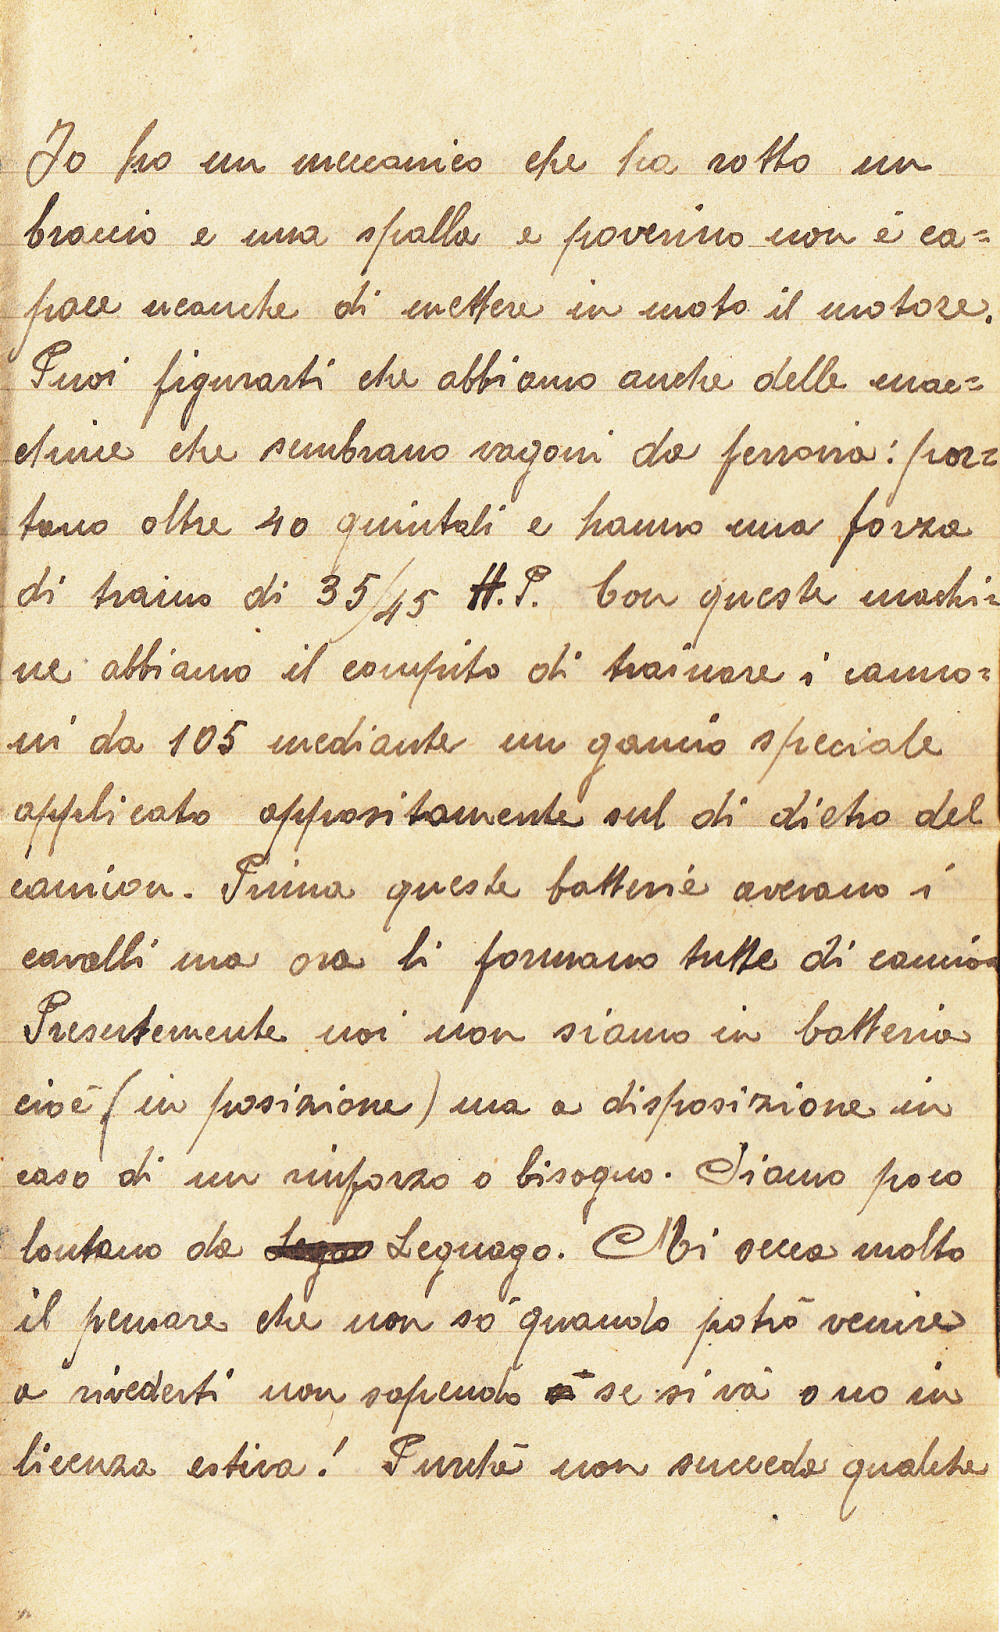 Io ho un meccanico che ha rotto un
braccio e una spalla e poverino non è ca=
pace neanche di mettere in moto il motore.
Puoi figurarti che abbiamo anche delle mac=
chine che sembrano vagoni da ferrovia: por=
tano oltre 40 quintali e hanno una forza
di traino di 35/45 H.P. Con queste machi=
ne abbiamo il compito di trainare i canno=
ni da 105 mediante un gancio speciale
applicato appositamente sul di dietro del
camion. Prima queste batterie avevano i
cavalli ma ora li formano tutte di camion
Presentemente noi non siamo in batteria
cioè (in posizione) ma a disposizione in
caso di un rinforzo o bisogno. Siamo poco
lontano da Legnago. Mi secca molto
il pensare che non so quando potrò venire
a rivederti non sapendo se si và o no in
licenza estiva! Purchè non succeda qualche